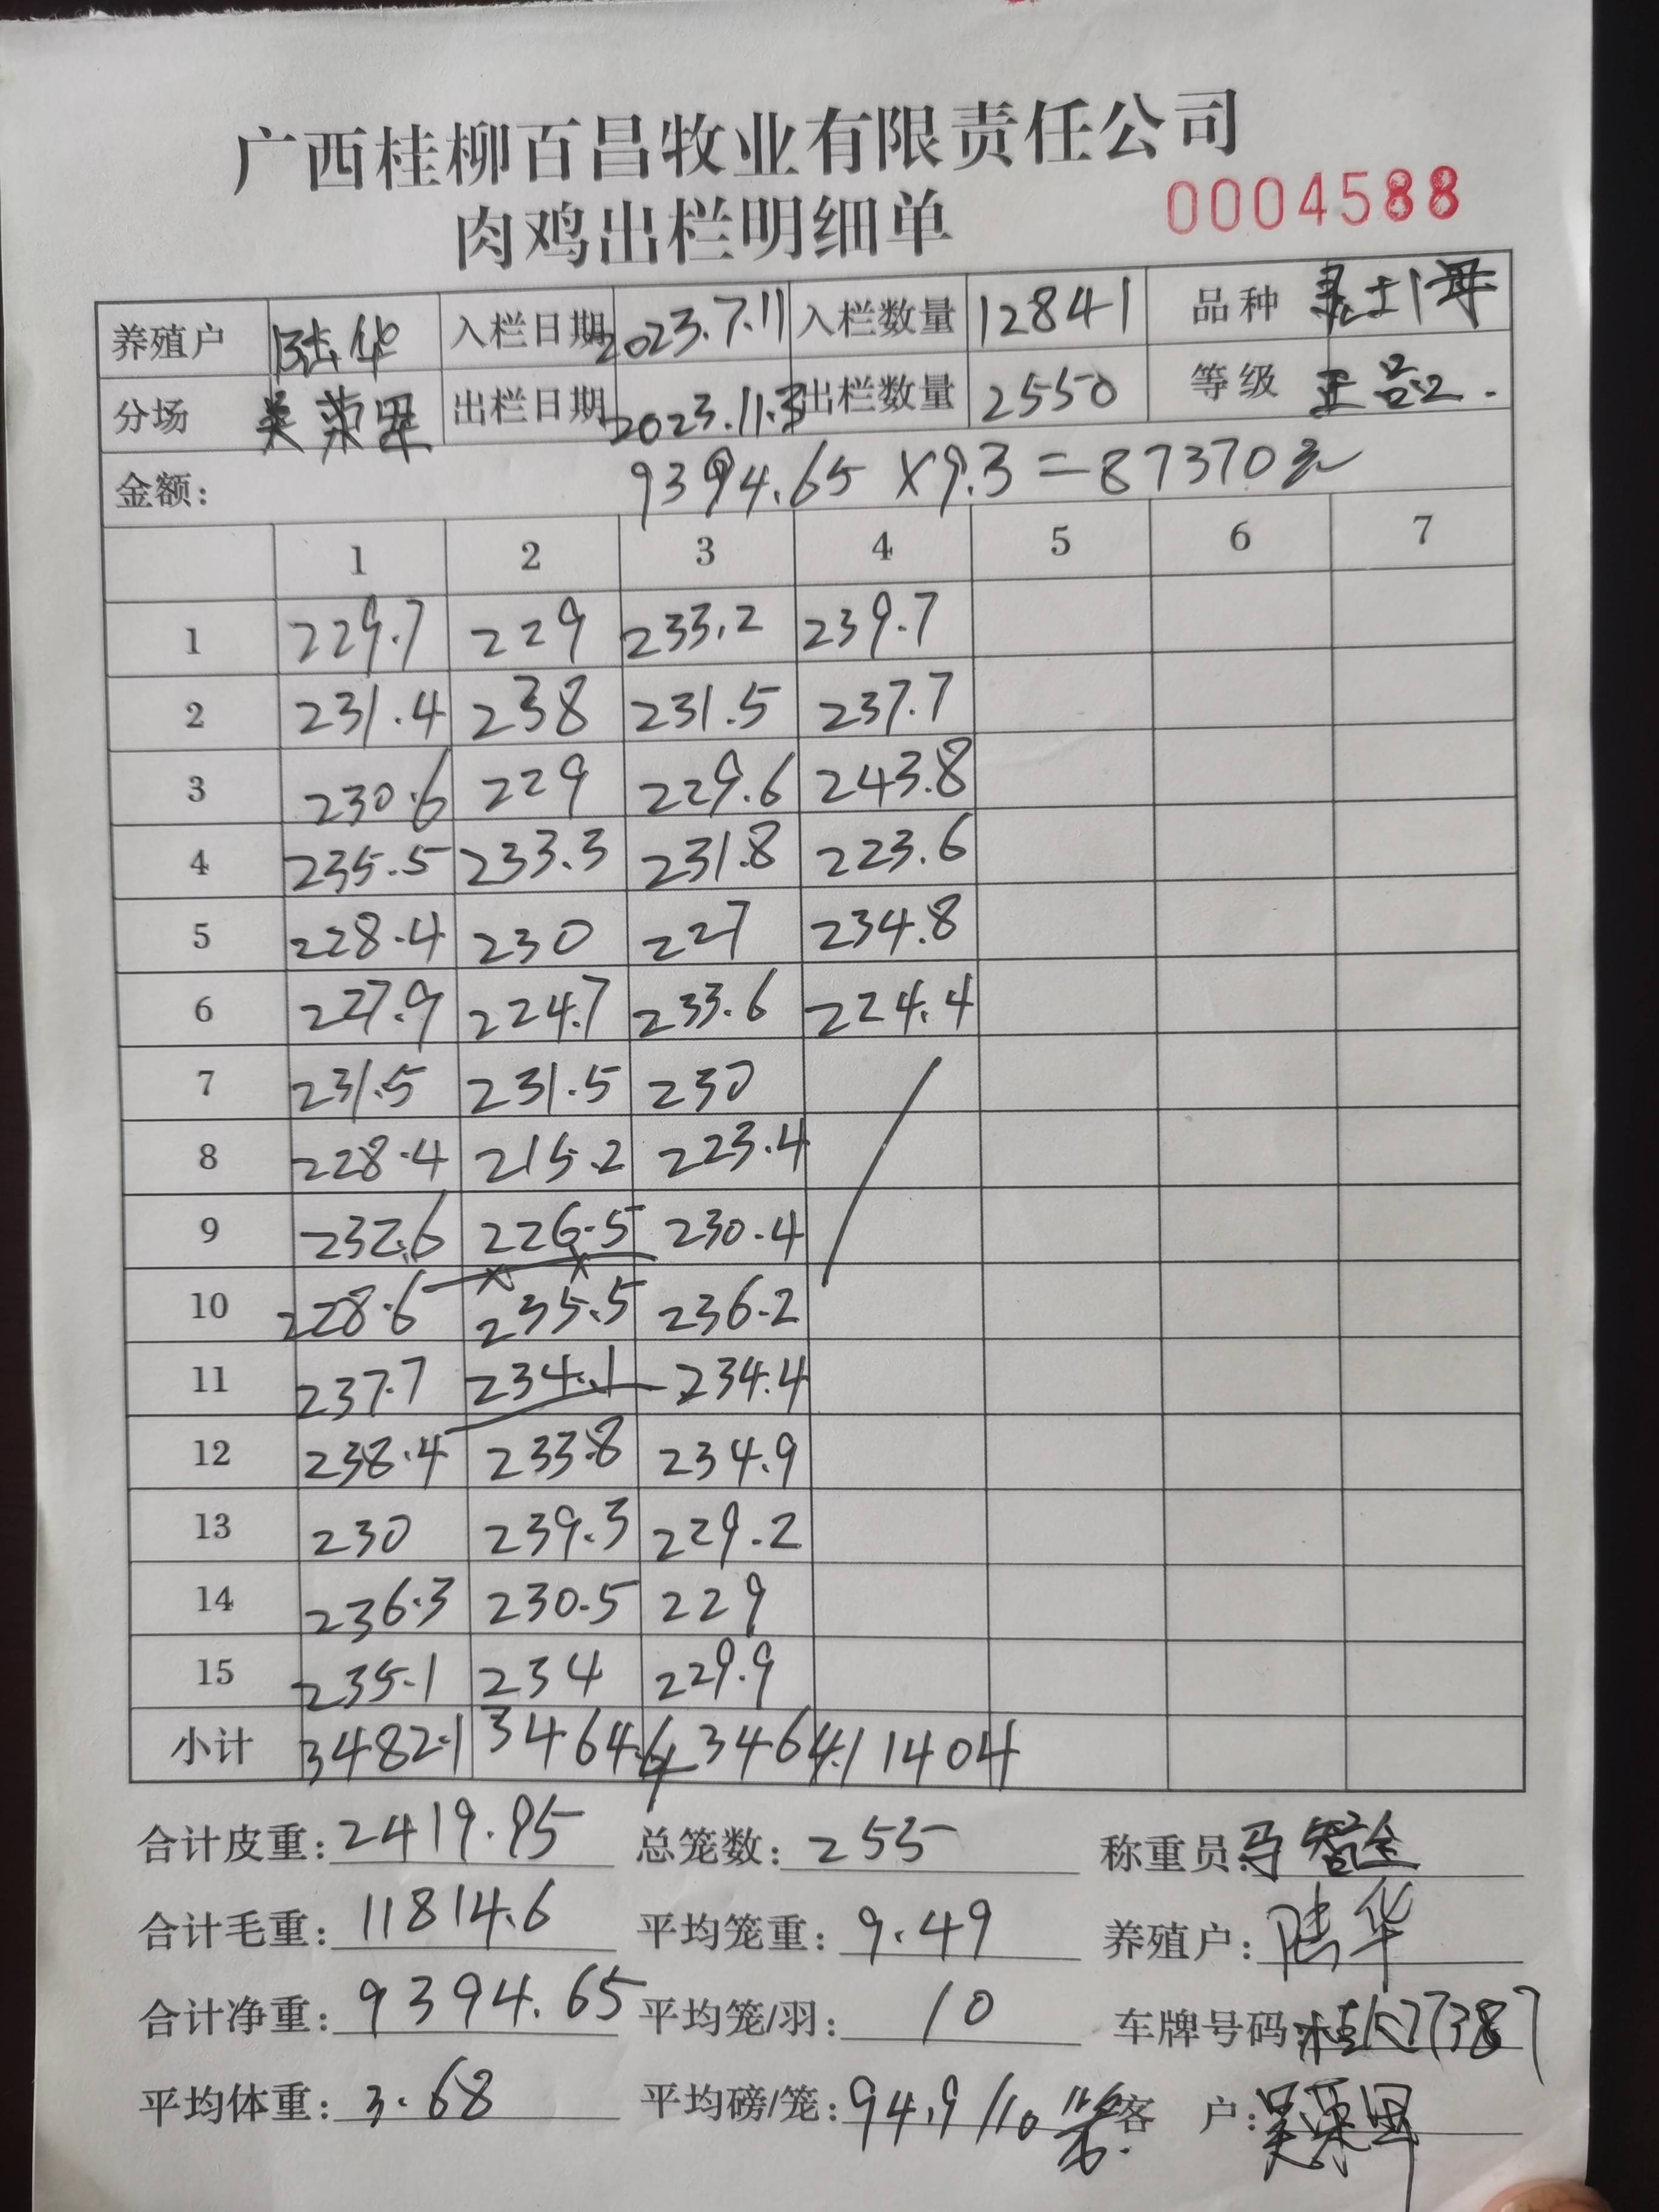 广西桂柳百昌牧业有限责任公司
肉鸡出栏明细单 0004588
养殖户 陆华 入栏日期 2023.7.11 入栏数量 12841 品种 土1母
分场 吴荣男 出栏日期 2023.11.3 出栏数量 2550 等级 正品.
金额: 9394.65×9.3=87370元
1 2 3 4 5 6 7
1 229.7 229 233.2 239.7
2 231.4 238 231.5 237.7
3 230.6 229 229.6 243.8
4 235.5 233.3 231.8 223.6
5 228.4 230 227 234.8
6 227.9 224.7 233.6 224.4
7 231.5 231.5 230
8 228.4 215.2 223.4
9 232.6 226.5 230.4
10 228.6 235.5 236.2
11 237.7 234.1 234.4
12 238.4 233.8 234.9
13 230 239.3 229.2
14 236.3 230.5 229
15 235.1 234 229.9
小计 3482.1 3464.4 3464.1 1404
合计皮重: 2419.95 总笼数: 255 称重员: 马
合计毛重: 11814.6 平均笼重: 9.49 养殖户: 陆华
合计净重: 9394.65 平均笼/羽: 10 车牌号码: 77387
平均体重: 3.68 平均磅/笼: 94.9/10 客 户: